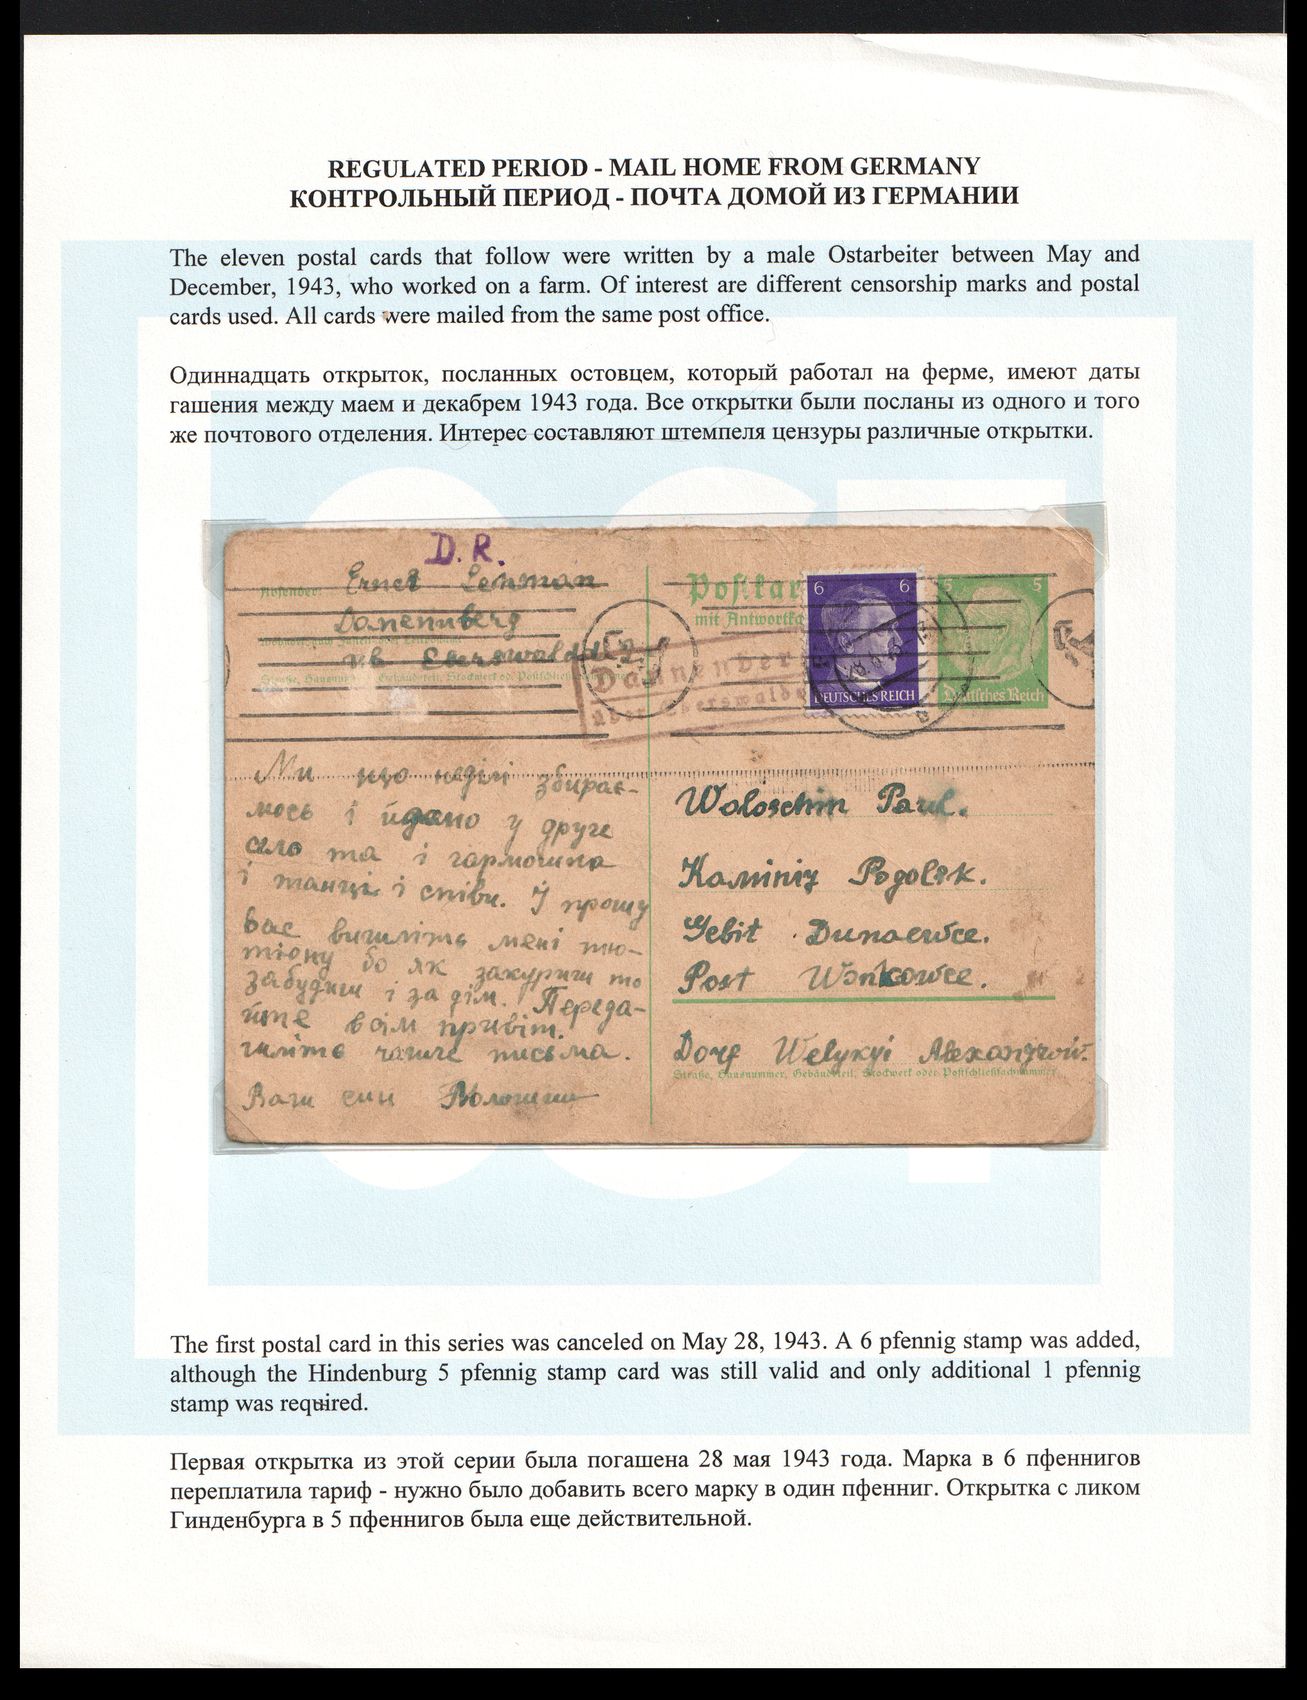 REGULATED PERIOD - MAIL HOME FROM GERMANY
КОНТРОЛЬНЫЙ ПЕРИОД - ПОЧТА ДОМОЙ ИЗ ГЕРМАНИИ
The eleven postal cards that follow were written by a male Ostarbeiter between May and
December, 1943, who worked on a farm. Of interest are different censorship marks and postal
cards used. All cards were mailed from the same post office.
Одиннадцать открыток, посланных остовцем, который работал на ферме, имеют даты
гашения между маем и декабрем 1943 года. Все открытки были посланы из одного и того
же почтового отделения. Интерес составляют штемпеля цензуры различные открытки.
D. R.
Absender: Ernst Lehman
Danennberg
Straße, Hausnummer, Gebäudeteil, Stockwerk od. Postschließfachnummer
Dannenberg
über Eberswalde
Postkar
mit Antwortka
6 6
DEUTSCHES REICH
5 5
Deutsches Reich
Ми що неділі збирає-
мось і йдемо у друге
село та і гармошка
і танці і співи. Я прошу
Вас вишліть мені тю-
тюну бо як закуриш то
забудиш і за дім. Переда-
йте всім привіт.
шліть чаще письма.
Ваш син Волошин
Woloschin Paul.
Kaminiz Pogolsk.
Gebit Dunaewce.
Post Wonkowce.
Dorf Welykyi Alexandrow.
Straße, Hausnummer, Gebäudeteil, Stockwerk oder Postschließfachnummer
The first postal card in this series was canceled on May 28, 1943. A 6 pfennig stamp was added,
although the Hindenburg 5 pfennig stamp card was still valid and only additional 1 pfennig
stamp was required.
Первая открытка из этой серии была погашена 28 мая 1943 года. Марка в 6 пфеннигов
переплатила тариф - нужно было добавить всего марку в один пфенниг. Открытка с ликом
Гинденбурга в 5 пфеннигов была еще действительной.